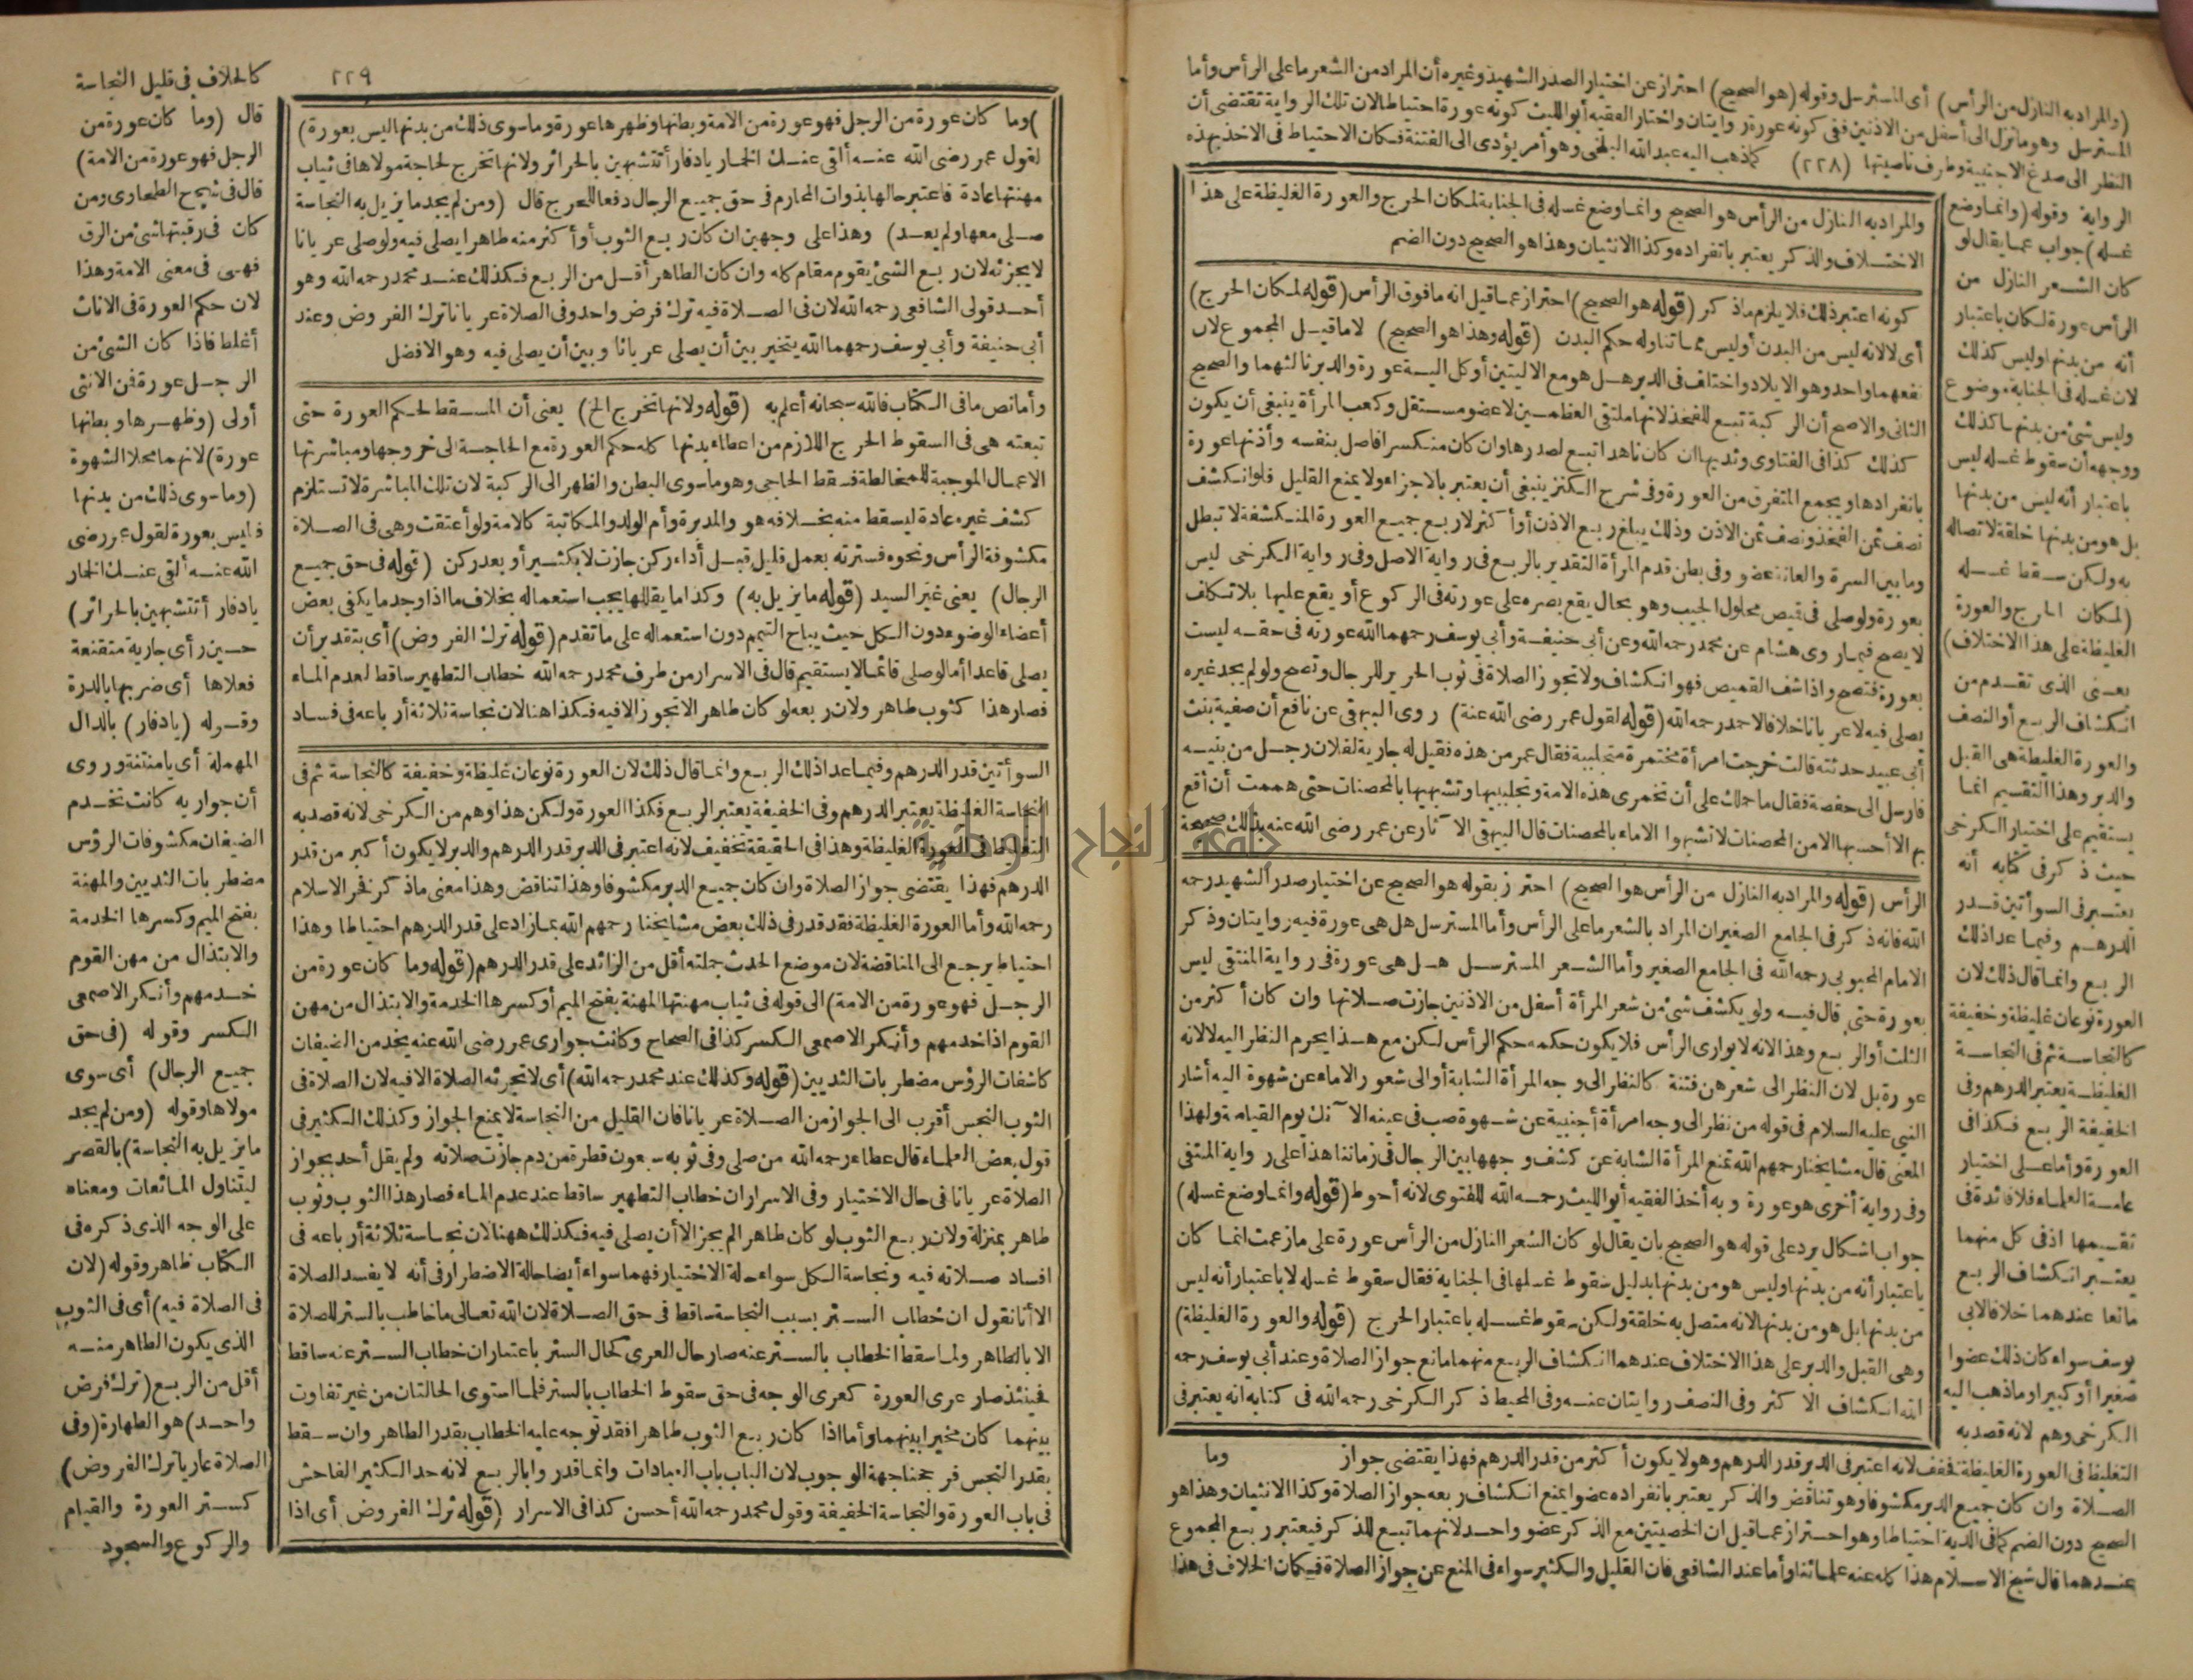 (والمراد به النازل من الرأس) أى المسترسل وقوله (هو الصحيح) احتراز عن اختيار الصدر الشهيد وغيره أن المراد من الشعر ما على الرأس وأما
المسترسل وهو ما نزل الى أسفل من الاذنين ففى كونه عورة روايتان واختار الفقيه أبو الليث كونه عورة احتياطا لان تلك الرواية تقتضى أن
النظر الى صدغ الاجنبية وطرف ناصيتها (٢٢٨) كما ذهب اليه عبد الله البلخى وهو أمر يؤدى الى الفتنة فكان الاحتياط فى الاخذ بهذه
الرواية وقوله (وانما وضع
غسله) جواب عما يقال لو
كان الشعر النازل من
الرأس عورة لكان باعتبار
أنه من بدنها وليس كذلك
لان غسله فى الجنابة موضوع
وليس شئ من بدنها كذلك
ووجهه أن سقوط غسله ليس
باعتبار أنه ليس من بدنها
بل هو من بدنها خلقة لاتصاله
به ولكن سقط غسله
(لمكان الحرج والعورة
الغليظة على هذا الاختلاف)
يعنى الذى تقدم من
انكشاف الربع أو النصف
والعورة الغليظة هى القبل
والدبر وهذا التقسيم انما
يستقيم على اختيار الكرخى
حيث ذكر فى كتابه أنه
يعتبر فى السوأتين قدر
الدرهم وفيما عدا ذلك
الربع وانما قال ذلك لان
العورة نوعان غليظة وخفيفة
كالنجاسة ثم فى النجاسة
الغليظة يعتبر الدرهم وفى
الخفيفة الربع فكذا فى
العورة وأما على اختيار
عامة العلماء فلا فائدة فى
تقسيمها اذ فى كل منهما
يعتبر انكشاف الربع
مانعا عندهما خلافا لابى
يوسف سواء كان ذلك عضوا
صغيرا أو كبيرا وما ذهب اليه
الكرخى وهم لانه قصد به
والمراد به النازل من الرأس هو الصحيح وانما وضع غسله فى الجنابة لمكان الحرج والعورة الغليظة على هذا
الاختلاف والذكر يعتبر بانفراده وكذا الانثيان وهذا هو الصحيح دون الضم
كونه اعتبر ذلك فلا يلزم ماذكر (قوله هو الصحيح) احتراز عما قيل انه ما فوق الرأس (قوله لمكان الحرج)
أى لا لانه ليس من البدن أو ليس مما تناوله حكم البدن (قوله وهذا هو الصحيح) لا ما قيل المجموع لان
نفعهما واحد وهو الايلاد واختلف فى الدبر هل هو مع الاليتين أو كل الية عورة والدبر ثالثهما والصحيح
الثانى والاصح أن الركبة تبع للفخذ لانها ملتقى العظمين لا عضو مستقل وكعب المرأة ينبغى أن يكون
كذلك كذا فى الفتاوى وثديها ان كان ناهدا تبع لصدرها وان كان منكسرا فاصل بنفسه وأذنها عورة
بانفرادها ويجمع المتفرق من العورة وفى شرح الكنز ينبغى أن يعتبر بالاجزاء ولا يمنع القليل فلو انكشف
نصف ثمن الفخذ ونصف ثمن الاذن وذلك يبلغ ربع الاذن أو أكثر لا ربع جميع العورة المنكشفة لا تبطل
وما بين السرة والعانة عضو وفى بطن قدم المرأة التقدير بالربع فى رواية الاصل وفى رواية الكرخى ليس
بعورة ولو صلى فى قميص محلول الجيب وهو بحال يقع بصره على عورته فى الركوع أو يقع عليها بلا تكلف
لا يصح فيما روى هشام عن محمد رحمه الله وعن أبى حنيفة وأبى يوسف رحمهما الله عورته فى حقه ليست
بعورة فتصح واذا شف القميص فهو انكشاف ولا تجوز الصلاة فى ثوب الحرير للرجال وتصح ولو لم يجد غيره
يصلى فيه لا عريانا خلافا لاحمد رحمه الله (قوله لقول عمر رضى الله عنه) روى البيهقى عن نافع أن صفية بنت
أبى عبيد حدثته قالت خرجت امرأة مختمرة متجلببة فقال عمر من هذه فقيل له جارية لفلان رجل من بنيه
فارسل الى حفصة فقال ما حملك على أن تخمرى هذه الامة وتجلببيها وتشبهيها بالمحصنات حتى هممت أن أقع
بها لا أحسبها الا من المحصنات لا تشبهوا الاماء بالمحصنات قال البيهقى الآثار عن عمر رضى الله عنه بذلك صحيحة
الرأس (قوله والمراد به النازل من الرأس هو الصحيح) احترز بقوله هو الصحيح عن اختيار صدر الشهيد رحمه
الله فانه ذكر فى الجامع الصغير ان المراد بالشعر ما على الرأس وأما المسترسل هل هى عورة فيه روايتان وذكر
الامام المحبوبى رحمه الله فى الجامع الصغير وأما الشعر المسترسل هل هى عورة فى رواية المنتقى ليس
بعورة حتى قال فيه ولو يكشف شئ من شعر المرأة أسفل من الاذنين جازت صلاتها وان كان أكثر من
الثلث أو الربع وهذا لانه لا يوارى الرأس فلا يكون حكمه حكم الرأس لكن مع هذا يحرم النظر اليه لا لانه
عورة بل لان النظر الى شعرهن فتنة كالنظر الى وجه المرأة الشابة أو الى شعور الاماء عن شهوة اليه أشار
النبى عليه السلام فى قوله من نظر الى وجه امرأة أجنبية عن شهوة صب فى عينه الآنك يوم القيامة ولهذا
المعنى قال مشايخنا رحمهم الله تمنع المرأة الشابة عن كشف وجهها بين الرجال فى زماننا هذا على رواية المنتقى
وفى رواية أخرى هو عورة وبه أخذ الفقيه أبو الليث رحمه الله للفتوى لانه أحوط (قوله وانما وضع غسله)
جواب اشكال يرد على قوله هو الصحيح بان يقال لو كان الشعر النازل من الرأس عورة على ما زعمت انما كان
باعتبار أنه من بدنها وليس هو من بدنها بدليل سقوط غسلها فى الجنابة فقال سقوط غسله لا باعتبار أنه ليس
من بدنها بل هو من بدنها لانه متصل به خلقة ولكن سقوط غسله باعتبار الحرج (قوله والعورة الغليظة)
وهى القبل والدبر على هذا الاختلاف عندهما انكشاف الربع منهما مانع جواز الصلاة وعند أبى يوسف رحمه
الله انكشاف الاكثر وفى النصف روايتان عنه وفى المحيط ذكر الكرخى رحمه الله فى كتابه انه يعتبر فى
التغليظ فى العورة الغليظة فخفف لانه اعتبر فى الدبر قدر الدرهم وهو لا يكون أكثر من قدر الدرهم فهذا يقتضى جواز وما
الصلاة وان كان جميع الدبر مكشوفا وهو تناقض والذكر يعتبر بانفراده عضوا يمنع انكشاف ربعه جواز الصلاة وكذا الانثيان وهذا هو
الصحيح دون الضم كما فى الدية احتياطا وهو احتراز عما قيل ان الخصيتين مع الذكر عضو واحد لانهما تبع للذكر فيعتبر ربع المجموع
عندهما قال شيخ الاسلام هذا كله عند علمائنا وأما عند الشافعى فان القليل والكثير سواء فى المنع عن جواز الصلاة فكان الخلاف فى هذا
٢٢٩
) وما كان عورة من الرجل فهو عورة من الامة وبطنها وظهرها عورة وما سوى ذلك من بدنها ليس بعورة)
لقول عمر رضى الله عنه ألقى عنك الخمار يا دفار أتتشبهين بالحرائر ولانها تخرج لحاجة مولاها فى ثياب
مهنتها عادة فاعتبر حالها بذوات المحارم فى حق جميع الرجال دفعا للحرج قال (ومن لم يجد ما يزيل به النجاسة
صلى معها ولم يعد) وهذا على وجهين ان كان ربع الثوب أو أكثر منه طاهرا يصلى فيه ولو صلى عريانا
لا يجزئه لان ربع الشئ يقوم مقام كله وان كان الطاهر أقل من الربع فكذلك عند محمد رحمه الله وهو
أحد قولى الشافعى رحمه الله لان فى الصلاة فيه ترك فرض واحد وفى الصلاة عريانا ترك الفروض وعند
أبى حنيفة وأبى يوسف رحمهما الله يتخير بين أن يصلى عريانا وبين أن يصلى فيه وهو الافضل
وأما نص ما فى الكتاب فالله سبحانه أعلم به (قوله ولانها تخرج الخ) يعنى أن المسقط لحكم العورة حتى
تبعته هى فى السقوط الحرج اللازم من اعطاء بدنها كله حكم العورة مع الحاجة الى خروجها ومباشرتها
الاعمال الموجبة للمخالطة فسقط الحاجى وهو ما سوى البطن والظهر الى الركبة لان تلك المباشرة لا تستلزم
كشف غيره عادة ليسقط منه بخلافه هو والمدبرة وأم الولد والمكاتبة كالامة ولو أعتقت وهى فى الصلاة
مكشوفة الرأس ونحوه فسترته بعمل قليل قبل أداء ركن جازت لا بكثير أو بعد ركن (قوله فى حق جميع
الرجال) يعنى غير السيد (قوله ما يزيل به) وكذا ما يقللها يجب استعماله بخلاف ما اذا وجد ما يكفى بعض
أعضاء الوضوء دون الكل حيث يباح التيمم دون استعماله على ما تقدم (قوله ترك الفروض) أى بتقدير أن
يصلى قاعدا أما لو صلى قائما لا يستقيم قال فى الاسرار من طرف محمد رحمه الله خطاب التطهير ساقط لعدم الماء
فصار هذا كثوب طاهر ولان ربعه لو كان طاهرا لا تجوز الا فيه فكذا هنا لان نجاسة ثلاثة أرباعه فى فساد
السوأتين قدر الدرهم وفيما عدا ذلك الربع وانما قال ذلك لان العورة نوعان غليظة وخفيفة كالنجاسة ثم فى
النجاسة الغليظة يعتبر الدرهم وفى الخفيفة يعتبر الربع فكذا العورة ولكن هذا وهم من الكرخى لانه قصد به
التغليظ فى العورة الغليظة وهذا فى الحقيقة تخفيف لانه اعتبر فى الدبر قدر الدرهم والدبر لا يكون أكبر من قدر
الدرهم فهذا يقتضى جواز الصلاة وان كان جميع الدبر مكشوفا وهذا تناقض وهذا معنى ماذكر فخر الاسلام
رحمه الله وأما العورة الغليظة فقد قدر فى ذلك بعض مشايخنا رحمهم الله بما زاد على قدر الدرهم احتياطا وهذا
احتياط يرجع الى المناقضة لان موضع الحدث جملته أقل من الزائد على قدر الدرهم (قوله وما كان عورة من
الرجل فهو عورة من الامة) الى قوله فى ثياب مهنتها المهنة بفتح الميم أو كسرها الخدمة والابتذال من مهن
القوم اذا خدمهم وأنكر الاصمعى الكسر كذا فى الصحاح وكانت جوارى عمر رضى الله عنه يخدمن الضيفان
كاشفات الرؤس مضطربات الثديين (قوله وكذلك عند محمد رحمه الله) أى لا تجزئه الصلاة الا فيه لان الصلاة فى
الثوب النجس أقرب الى الجواز من الصلاة عريانا فان القليل من النجاسة لا يمنع الجواز وكذلك الكثير فى
قول بعض العلماء قال عطاء رحمه الله من صلى وفى ثوبه سبعون قطرة من دم جازت صلاته ولم يقل أحد بجواز
الصلاة عريانا فى حال الاختيار وفى الاسرار ان خطاب التطهير ساقط عند عدم الماء فصار هذا الثوب وثوب
طاهر بمنزلة ولان ربع الثوب لو كان طاهرا لم يجز الا أن يصلى فيه فكذلك ههنا لان نجاسة ثلاثة أرباعه فى
افساد صلاته فيه ونجاسة الكل سواء حالة الاختيار فهما سواء أيضا حالة الاضطرار فى أنه لا يفسد الصلاة
الا أنا نقول ان خطاب الستر بسبب النجاسة ساقط فى حق الصلاة لان الله تعالى ما خاطب بالستر للصلاة
الا بالطاهر ولما سقط الخطاب بالستر عنه صار حال العرى كحال الستر باعتبار ان خطاب الستر عنه ساقط
فحينئذ صار عرى العورة كعرى الوجه فى حق سقوط الخطاب بالستر فلما استوى الحالتان من غير تفاوت
بينهما كان مخيرا بينهما وأما اذا كان ربع الثوب طاهرا فقد توجه عليه الخطاب بقدر الطاهر وان سقط
بقدر النجس فرجحنا جهة الوجوب لان الباب باب العبادات وانما قدروا بالربع لانه حد الكثير الفاحش
فى باب العورة والنجاسة الخفيفة وقول محمد رحمه الله أحسن كذا فى الاسرار (قوله ترك الفروض أى اذا
كالخلاف فى قليل النجاسة
قال (وما كان عورة من
الرجل فهو عورة من الامة)
قال فى شرح الطحاوى ومن
كان فى رقبتها شئ من الرق
فهى فى معنى الامة وهذا
لان حكم العورة فى الاناث
أغلظ فاذا كان الشئ من
الرجل عورة فمن الانثى
أولى (وظهرها وبطنها
عورة) لانهما محلا الشهوة
(وما سوى ذلك من بدنها
فليس بعورة لقول عمر رضى
الله عنه ألقى عنك الخمار
يا دفار أتتشبهين بالحرائر)
حين رأى جارية متقنعة
فعلاها أى ضربها بالدرة
وقوله (يا دفار) بالدال
المهملة أى يا منتنة وروى
أن جواريه كانت تخدم
الضيفان مكشوفات الرؤس
مضطربات الثديين والمهنة
بفتح الميم وكسرها الخدمة
والابتذال من مهن القوم
خدمهم وأنكر الاصمعى
الكسر وقوله (فى حق
جميع الرجال) أى سوى
مولاها وقوله (ومن لم يجد
ما يزيل به النجاسة) بالقصر
ليتناول المائعات ومعناه
على الوجه الذى ذكره فى
الكتاب ظاهر وقوله (لان
فى الصلاة فيه) أى فى الثوب
الذى يكون الطاهر منه
أقل من الربع (ترك فرض
واحد) هو الطهارة (وفى
الصلاة عاريا ترك الفروض)
كستر العورة والقيام
والركوع والسجود
جامعة النجاح الوطنية